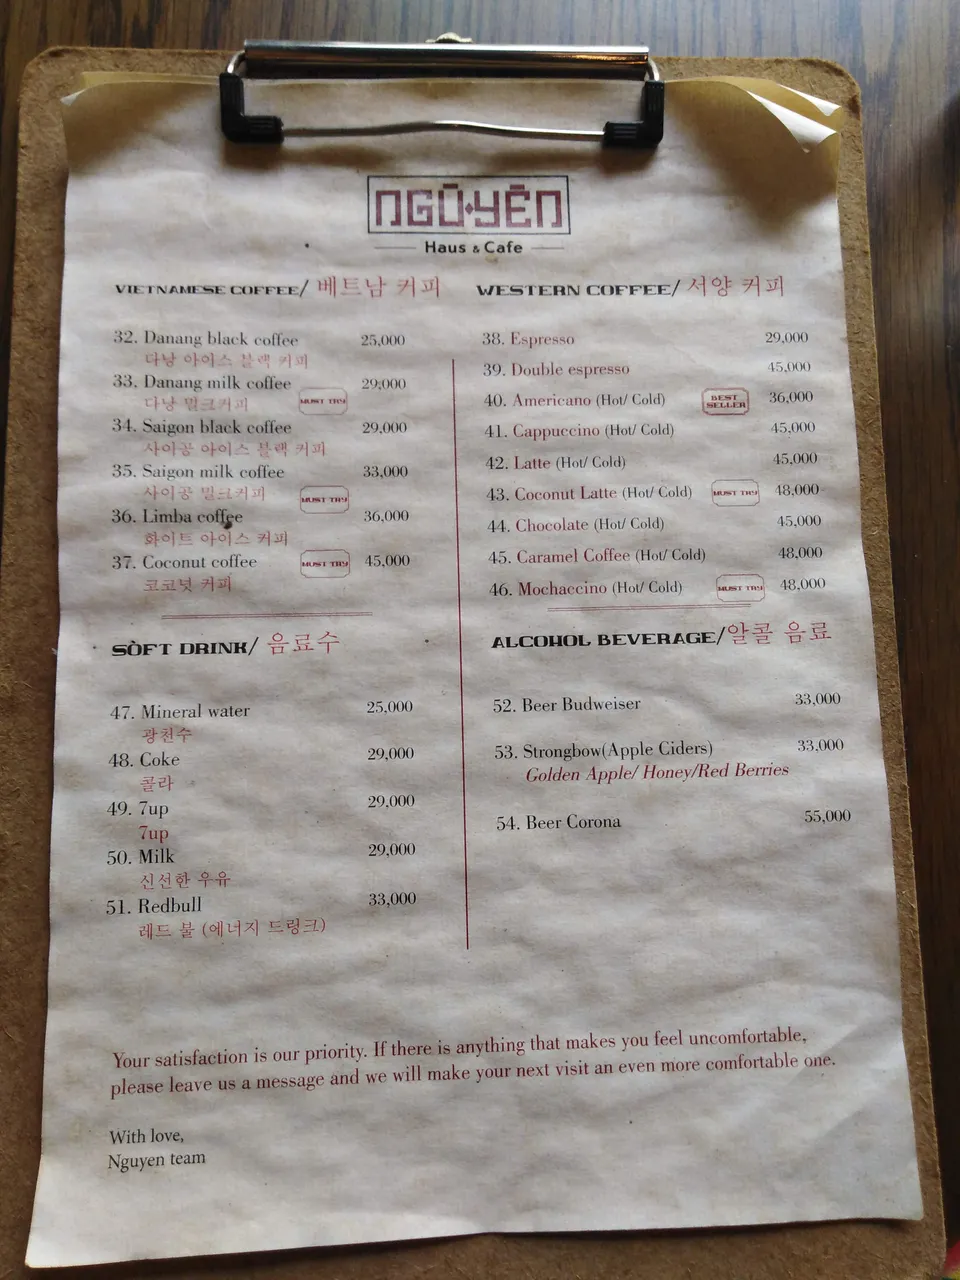 NGŪ·YÊN
Haus & Cafe
VIETNAMESE COFFEE/ 베트남 커피
32. Danang black coffee 25,000
다낭 아이스 블랙 커피
33. Danang milk coffee 29,000
다낭 밀크커피 MUST TRY
34. Saigon black coffee 29,000
사이공 아이스 블랙 커피
35. Saigon milk coffee 33,000
사이공 밀크커피 MUST TRY
36. Limba coffee 36,000
화이트 아이스 커피
37. Coconut coffee MUST TRY 45,000
코코넛 커피
SÒFT DRINK/ 음료수
47. Mineral water 25,000
광천수
48. Coke 29,000
콜라
49. 7up 29,000
7up
50. Milk 29,000
신선한 우유
51. Redbull 33,000
레드 불 (에너지 드링크)
WESTERN COFFEE/ 서양 커피
38. Espresso 29,000
39. Double espresso 45,000
40. Americano (Hot/ Cold) BEST SELLER 36,000
41. Cappuccino (Hot/ Cold) 45,000
42. Latte (Hot/ Cold) 45,000
43. Coconut Latte (Hot/ Cold) MUST TRY 48,000
44. Chocolate (Hot/ Cold) 45,000
45. Caramel Coffee (Hot/ Cold) 48,000
46. Mochaccino (Hot/ Cold) MUST TRY 48,000
ALCOHOL BEVERAGE/알콜 음료
52. Beer Budweiser 33,000
53. Strongbow(Apple Ciders) 33,000
Golden Apple/ Honey/Red Berries
54. Beer Corona 55,000
Your satisfaction is our priority. If there is anything that makes you feel uncomfortable,
please leave us a message and we will make your next visit an even more comfortable one.
With love,
Nguyen team